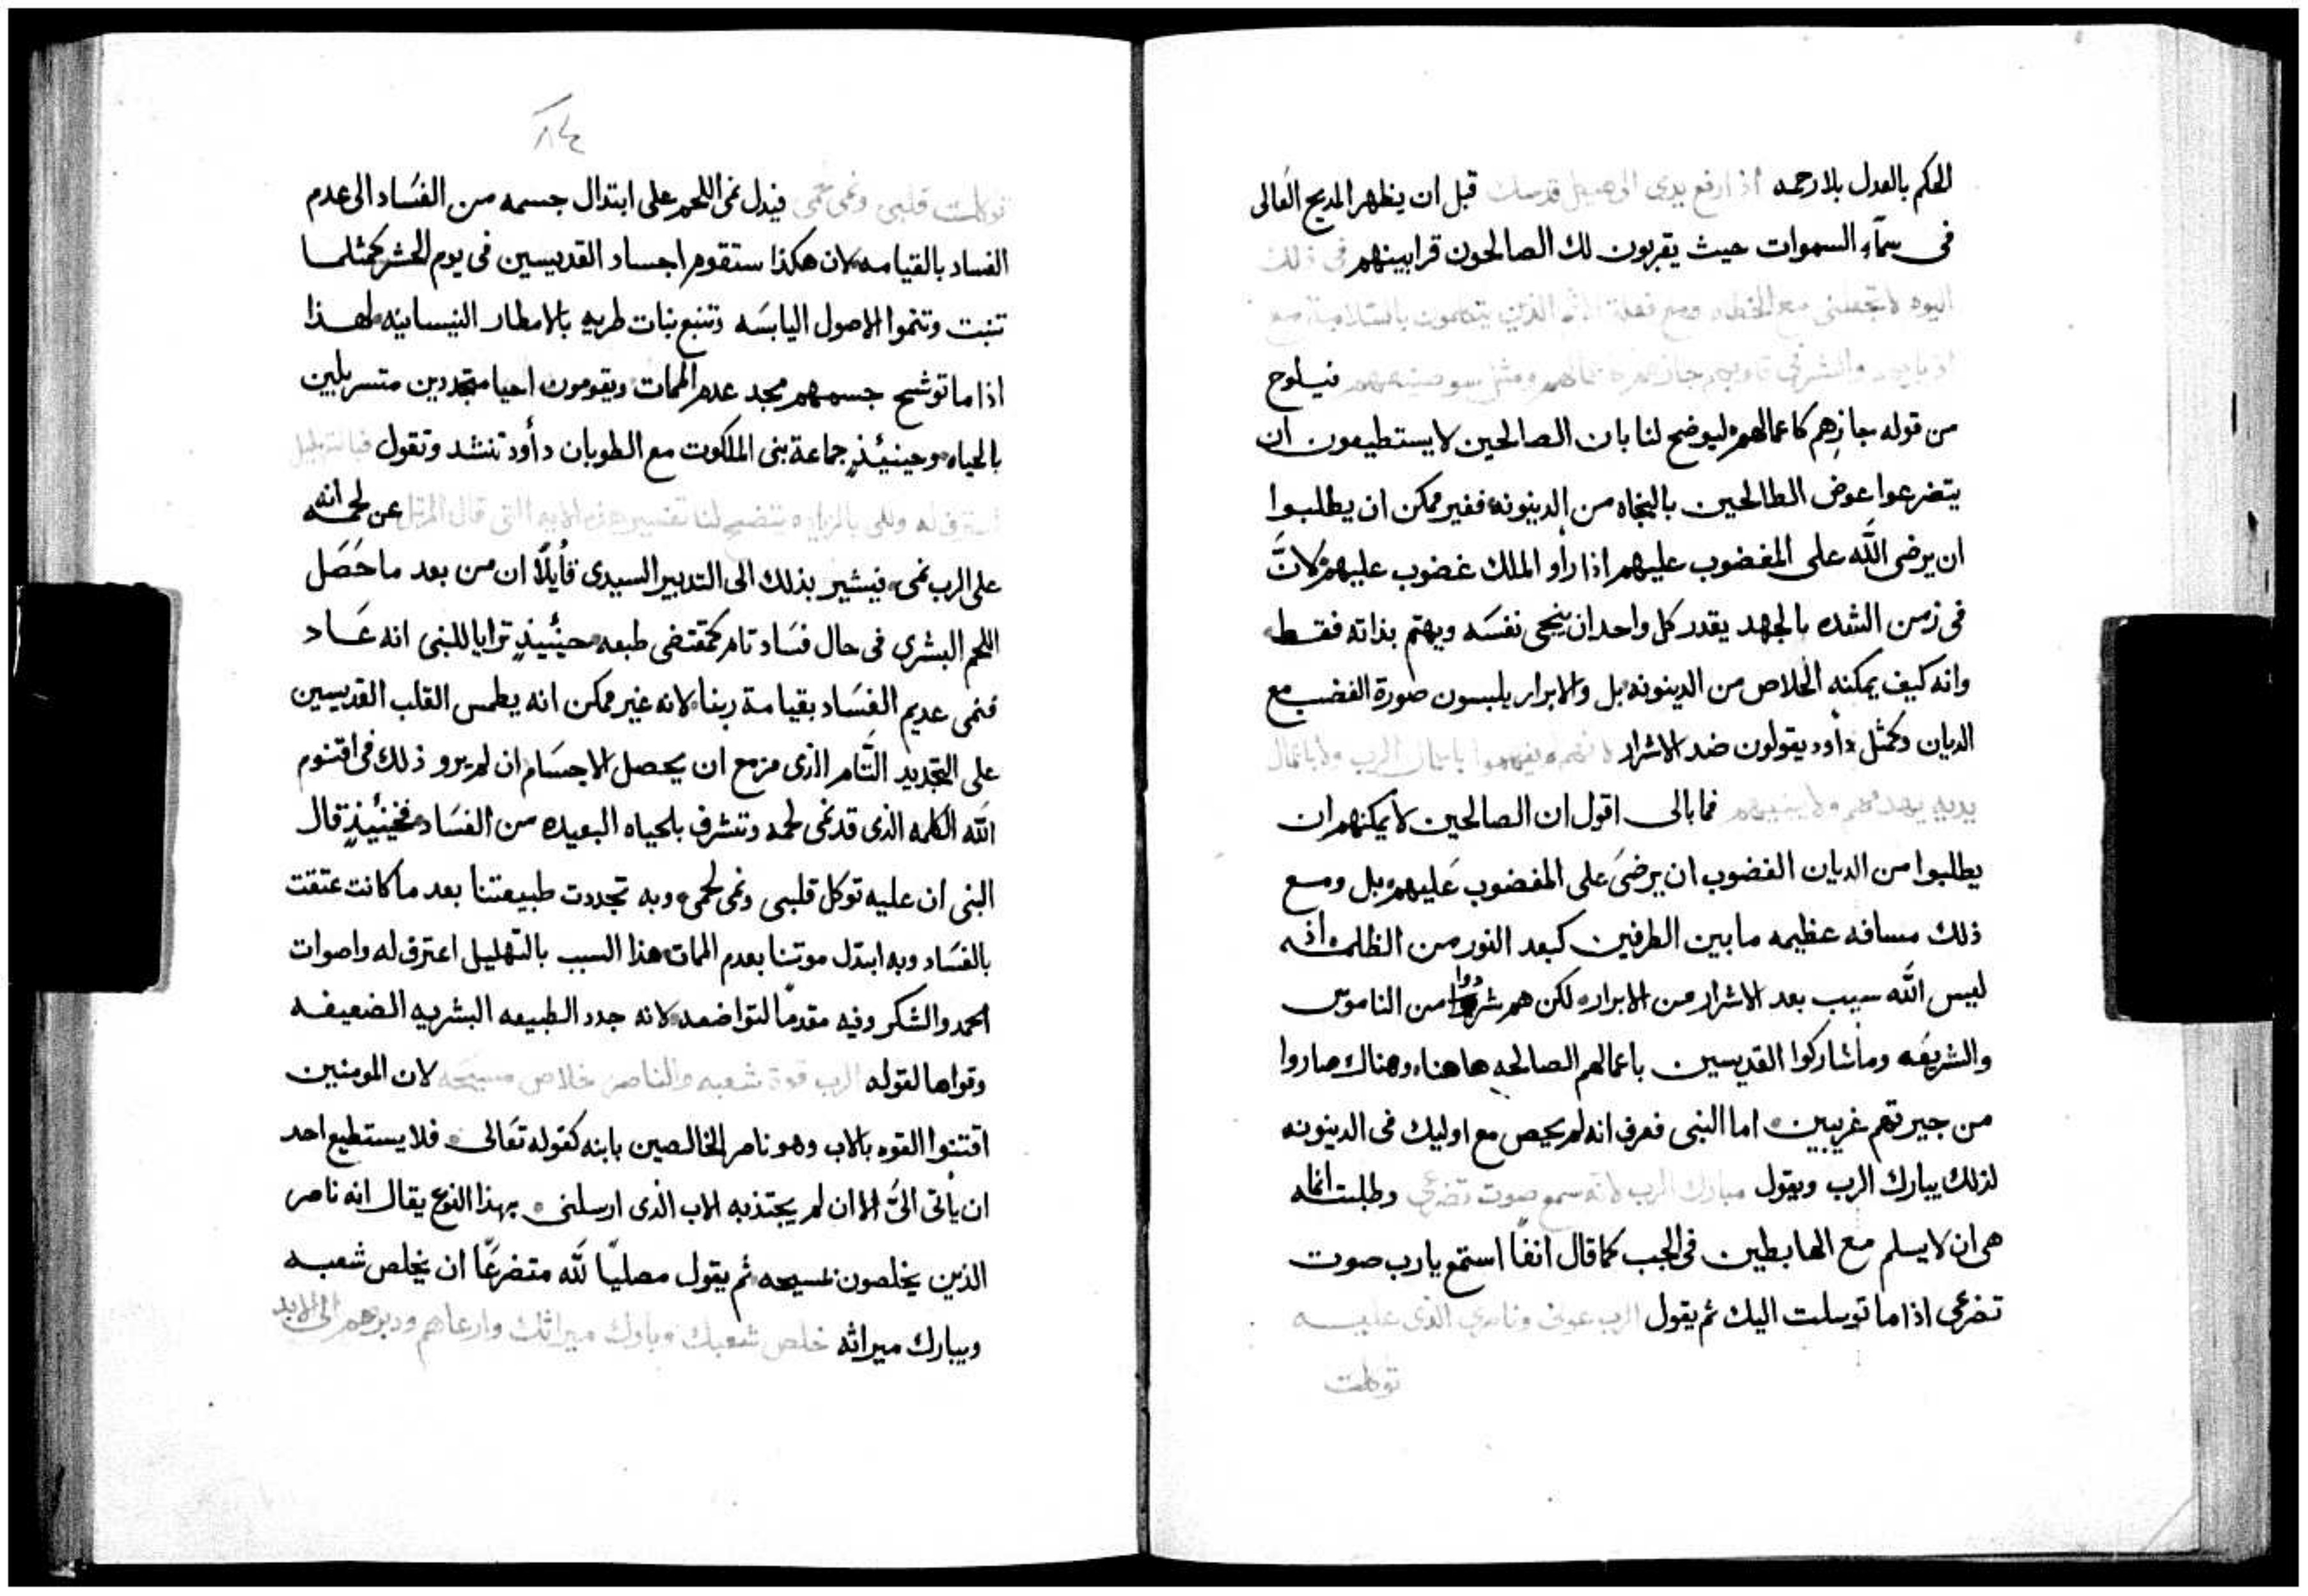 الحكم بالعدل بلا رحمه اذ ارفع يدى الى هيكل قدسك قبل ان يظهر المديح العَالى
فى سمآء السموات حيث يقربون لك الصالحون قرابينهم فى ذلك
اليوم لا تجعلنى مع الخطاه ومع فعلة الاثم الذين يتكلمون بالسلامة مع
فيلوح
من قوله جازهم كاعمالهم ليوضح لنا بان الصالحين لا يستطيعون ان
يتضرعوا عوض الطالحين بالنجاه من الدينونه فغير ممكن ان يطلبوا
ان يرضى اللّه على المغضوب عليهم اذا رأو الملك غضوب عليهم لانَّ
فى زمن الشده بالجهد يقدر كل واحد ان ينجى نفسَه ويهتم بذاته فقط
وانه كيف يمكنه الخلاص من الدينونه بل والابرار يلبسون صورة الغضب مع
الديان وكمثل دأود يقولون ضد الاشرار لانهم لم يفهموا باعمال الرب ولا باعمال
يديه يهدمهم ولا يبنيهم فما بالى اقول ان الصالحين لا يمكنهم ان
يطلبوا من الديان الغضوب ان يرضىَ على المغضوب عَليهم بل ومع
ذلك مسافه عظيمه ما بين الطرفين كبعد النور من الظلمه انه
ليس اللّه سبب بعد الاشرار من الابرار لكن هم شردوا من الناموس
والشريعَه وما شاركوا القديسين باعمالهم الصالحه هاهنا وهناك صاروا
من جيرتهم غريبين اما النبى فعرف انه لم يحص مع اوليك فى الدينونه
لذلك يبارك الرب ويقول مبارك الرب لانه سمع صوت تضرعى وطلبت انه
هى ان لا يسلم مع الهابطين فى الجب كما قال انفًا استمع يا رب صوت
تضرعى اذا ما توسلت اليك ثم يقول الرب عونى وناصرى الذى عليه
توكلت
٨٤
توكلت قلبى ونمى لحمى فيدل نمى اللحم على ابتدال جسمه من الفسَاد الى عدم
الفساد بالقيامه لان هكذا ستقوم اجساد القديسين فى يوم الحشر كمثلما
تنبت وتنموا الاصول اليابسَه وتنبع نبات طريه بالامطار النيسانيه لهذا
اذا ما توشح جسمهم مجد عدم الممات ويقومون احيا متجددين متسربلين
بالحياه وحينيئذٍ جماعة بنى الملكوت مع الطوبان دأود تنشد وتقول فبالتهليل
اعترف له يتضح لنا تفسير هذه الايه التى قال المرتل عن لحمه انه
على الرب نمى فيشير بذلك الى التدبير السيدى قأيلًا ان من بعد ما حَصَل
اللحم البشرى فى حال فسَاد تام كمقتضى طبعه حينيئذٍ ترايا للنبى انه عَاد
فنمى عديم الفسَاد بقيامة ربنا لانه غير ممكن انه يطمس القلب القديسين
على التجديد التَّام الذى مزمع ان يحصل الاجسَام ان لم يرو ذلك فى اقنوم
اللّه الكلمه الذى قد نمى لحمه وتشرف بلحياه البعيده من الفسَاد فحينيئذٍ قال
النبى ان عليه توكل قلبى ونمى لحمى وبه تجددت طبيعتنا بعد ما كانت عتقت
بالفسَاد وبه ابتدل موتنا بعدم الممات هذا السبب بالتهليل اعترف له واصوات
الحمد والشكر وفيه مقدمًا لتواضعه لانه جدد الطبيعه البشريه الضعيفه
وقواها لقوله الرب قوة شعبه والناصر خلاص مسيحه لان المومنين
اقتنوا القوه بالاب وهو ناصر الخالصين بابنه كقوله تعَالى فلا يستطيع احد
ان يأتى الىَّ الا ان لم يجتذبه الاب الذى ارسلنى بهذا النوع يقال انه ناصر
الذين يخلصون بمسيحه ثم يقول مصليًا للّه متضرعًا ان يخلص شعبه
ويبارك ميراثه خلص شعبك وبارك ميراثك وارعاهم ودبرهم الى الابد